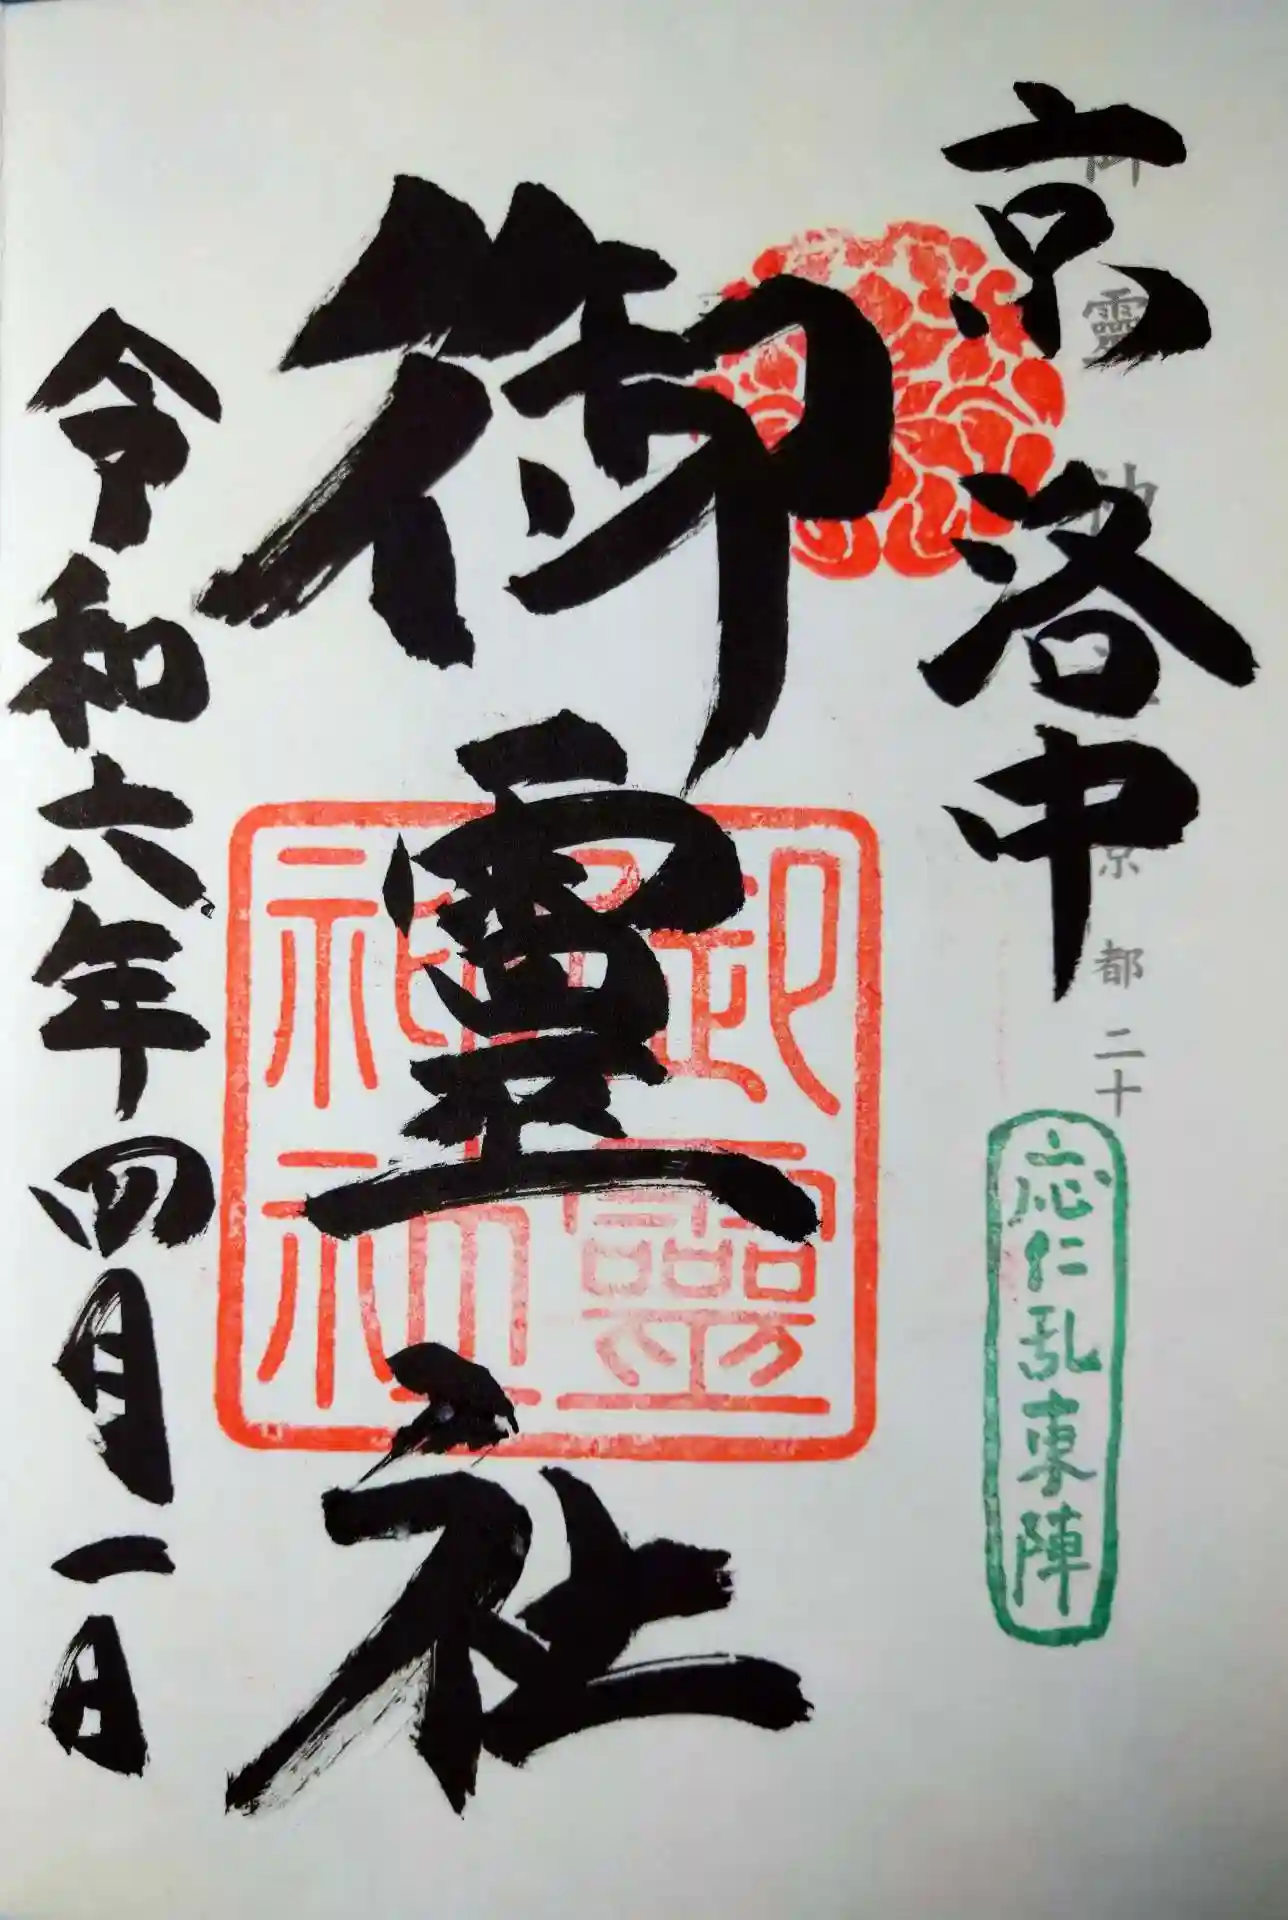 京洛中
御靈神社 京都二十
応仁乱東陣
御霊社
御靈神社
令和六年四月一日